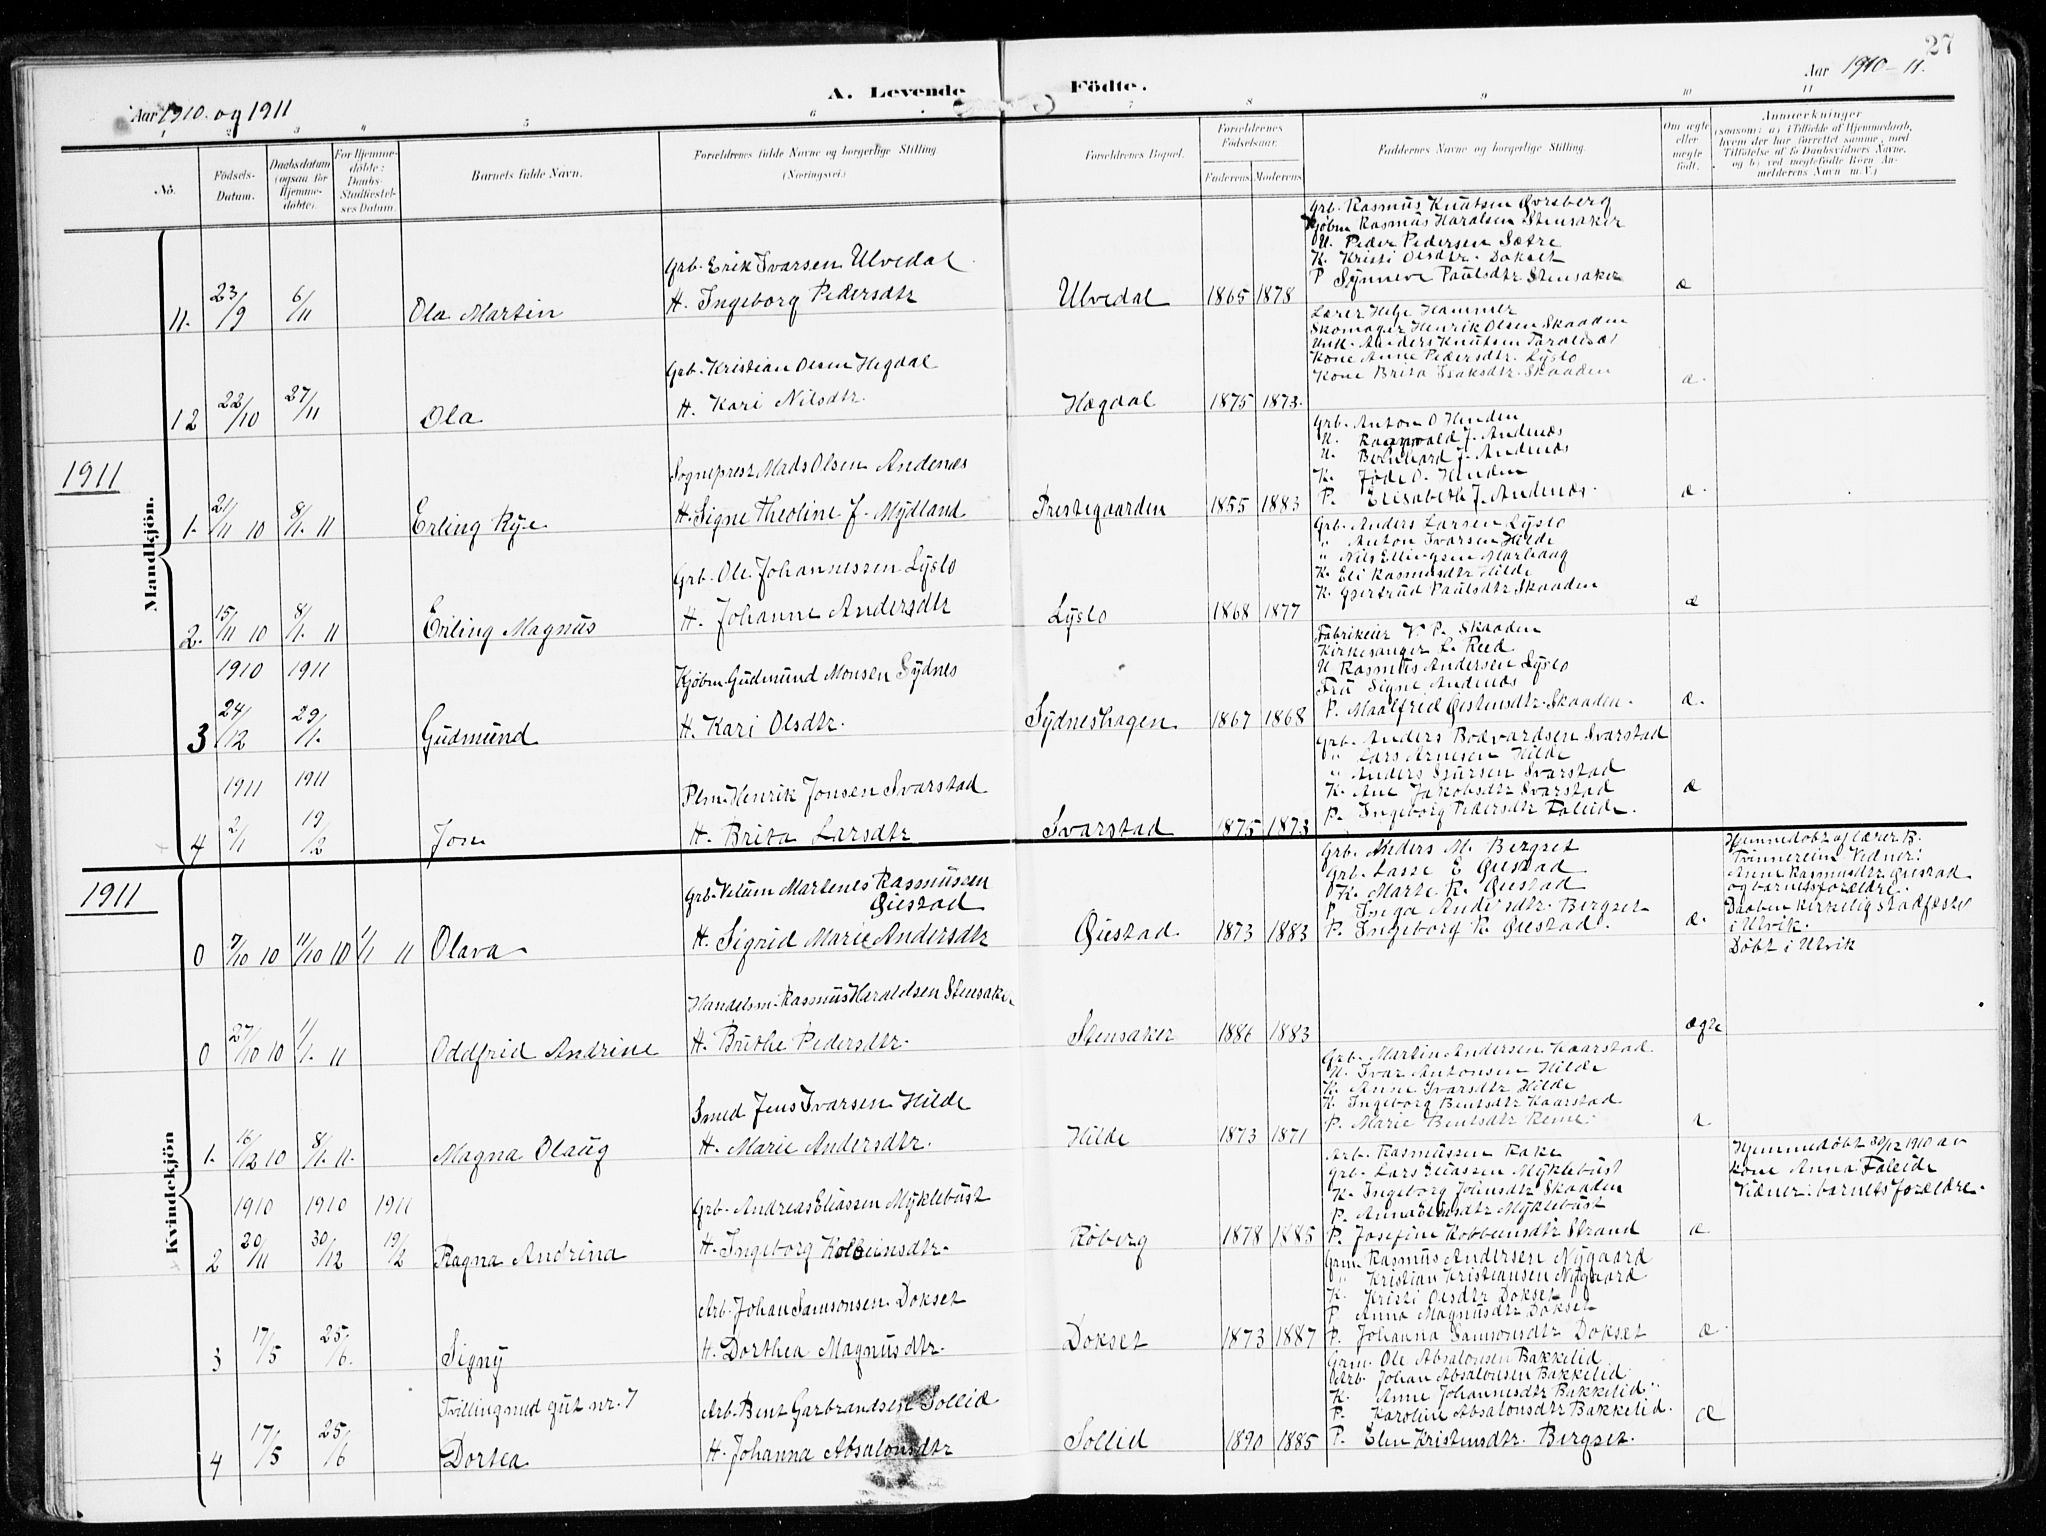 27
Aar 1910-11.
A. Levende Födte.
Aar 1910. og 1911
1 2 3 4 5 6 7 8 9 10 11
No.
Födsels-Datum.
Daabsdatum (ogsaa for Hjemmedöbte).
For Hjemmedöbte: Daabs-Stadfæstelses Datum.
Barnets fulde Navn.
Forældrenes fulde Navne og borgerlige Stilling.
(Næringsvei.)
Forældrenes Bopæl.
Forældrenes Födselsaar.
Faderens. Moderens.
Faddernes Navne og borgerlige Stilling.
Om ægte eller uægte født.
Anmærkninger
(saasom: a) i Tilfælde af Hjemmedaab, hvem der har forrettet samme, med Tilføielse af to Daabsvidners Navne, og b) ved uægtefödte Börn Anmelderens Navn m.V.)
Mandkjön.
Grb. Rasmus Knutsen Evrsberg
Kjøbm Rasmus Haralsen Stensaker
U. Peder Pedersen Sætre
K. Kristi Olsdtr. Dokset
P Synneve Paulsdtr Stensaker
Grb. Erik Ivarsen Ulvedal
11. 23/9 6/11 Ola Martin H. Ingeborg Pedersdtr Ulvedal 1865 1878 æ
Lærer Helje Hammer
Skomager Henrik Olsen Skaaden
Unk. Anders Knutsen
Kone Anne Pedersdtr. Lyslo
Kone Brita Isaksdtr. Skaaden
Grb. Kristian Olsen Hegdal
12 22/10 27/11 Ola H. Kari Nilsdtr. Hægdal 1875 1873. æ.
1911
Grb. Anton O Hinden
U. Ragnvald J. Andenæs
U. Bernhard J. Andenæs
K. Jøde O. Hinden
P. Elisabeth J. Andenæs.
Sogneprest Mads Olsen Andenæs
1. 21/11 10 8/1. 11 Erling Rye H. Signe Theoline J. Mydland Prestegaarden 1855 1883 æ.
Grb. Anders Larsen Lyslo
" Anton Ivarsen Hilde
" Nils Ellingsen Marhaug
K. Eli Rasmusdtr Hilde
K. Gjertrud Paulsdtr Skaaden
Grb. Ole Johannessen Lyslo
2. 15/11 10 8/1. 11 Erling Magnus H. Johanne Andersdtr Lyslo 1868 1877 æ
Fabrikeier P. Skaaden
Kirkesanger L. Reed
U Rasmus Andersen Lyslo
Fru Signe Andenæs
P. Maalfrid Eistensdtr. Skaaden.
1910 1911
Kjøbm. Gudmund Monsen Sydnes
3 24/12 29/1. Gudmund H. Kari Olsdtr. Sydneshagen 1867 1868 æ.
Grb. Anders Bodvardsen Svarstad
" Lars Arnesen Hilde
" Anders Sjursen Svarstad
K. Ane Jakobsdtr Svarstad
P. Ingeborg Pedersdtr Faleide.
1911 1911
Plm. Henrik Jonsen Svarstad
4 2/1 19/2 Jon H. Brita Larsdtr Svarstad 1875 1873 æ
Kvindekjön
1911
Grb. Anders M. Bergset
Grb. Lasse E Øiestad
K. Marte R. Øiestad
P. Inga Andersdtr. Bergset
P. Ingeborg R. Øiestad.
Hjemmedøbt af lærer B.
Tvinnereim. Vidner:
Anne Rasmusdtr Øiestad
og barnets forældre.
Daaben kirkelig stadfæstet
i Ulvik.
Grb. Velum Martenes Rasmussen
Øiestad
0 7/10 10 11/10 10 1/1 11 Olava H. Sigrid Marie Andersdtr Øiestad 1873 1883 æ.
Døbt i Ulvik
Handelsm. Rasmus Haraldsen Stensaker
0 27/10 10 1/1. 11 Oddfrid Andrine H. Brithe Pedersdtr. Stensaker 1886 1883 ægte
Grb. Martin Andersen Kaarstad.
U. Ivar Antonsen Hilde
K. Anne Ivarsdtr Hilde
K. Ingeborg Bentsdtr Kaarstad
P. Marie Bentsdtr Reme.
Smed Jens Ivarsen Hilde
1. 16/12 10 8/1. 11. Magna Olaug H. Marie Andersdtr. Hilde 1873 1871
Arb. Rasmussen Rake
Grb. Lars Eliassen Myklebust
K. Ingeborg Johnsdtr Skaaden
P. Anna Myklebust
P. Josefine Kobbeinsdtr Strand
Hjemmedøbt 30/12 1910 av
kone Anna Faleide
Vidner: barnets forældre.
1910 1910 1911
Grb. Andreas Eliassen Myklebust
2 20/11 30/12 19/2 Ragna Andrina H. Ingeborg Kolbeinsdtr. Røberg 1878 1885 æ
Grm. Rasmus Andersen Nygaard
" Kristian Kristiansen Nygaard
K. Kristi Olsdtr Dokset
P Anna Magnusdtr Dokset
P. Johanna Samsonsdtr Dokset
Arb. Johan Samsonsen. Dokset
3 17/5 25/6. Signy H. Dorthea Magnusdtr. Dokset 1873 1887 æ.
Grm. Ole Absalonsen Bakkelid
Arb. Johan Absalonsen Bakkelid.
K. Anne Johannesdtr Bakkelid.
P. Karoline Absalonsdtr Bakkelid.
P. Elen Kristensdtr. Bergset.
Tvilling med gut nr. 7
Arb. Bent Garbrandsen Sollid
4 17/5 25/6 Dortea H. Johanna Absalonsdtr Sollid 1890 1885 æ